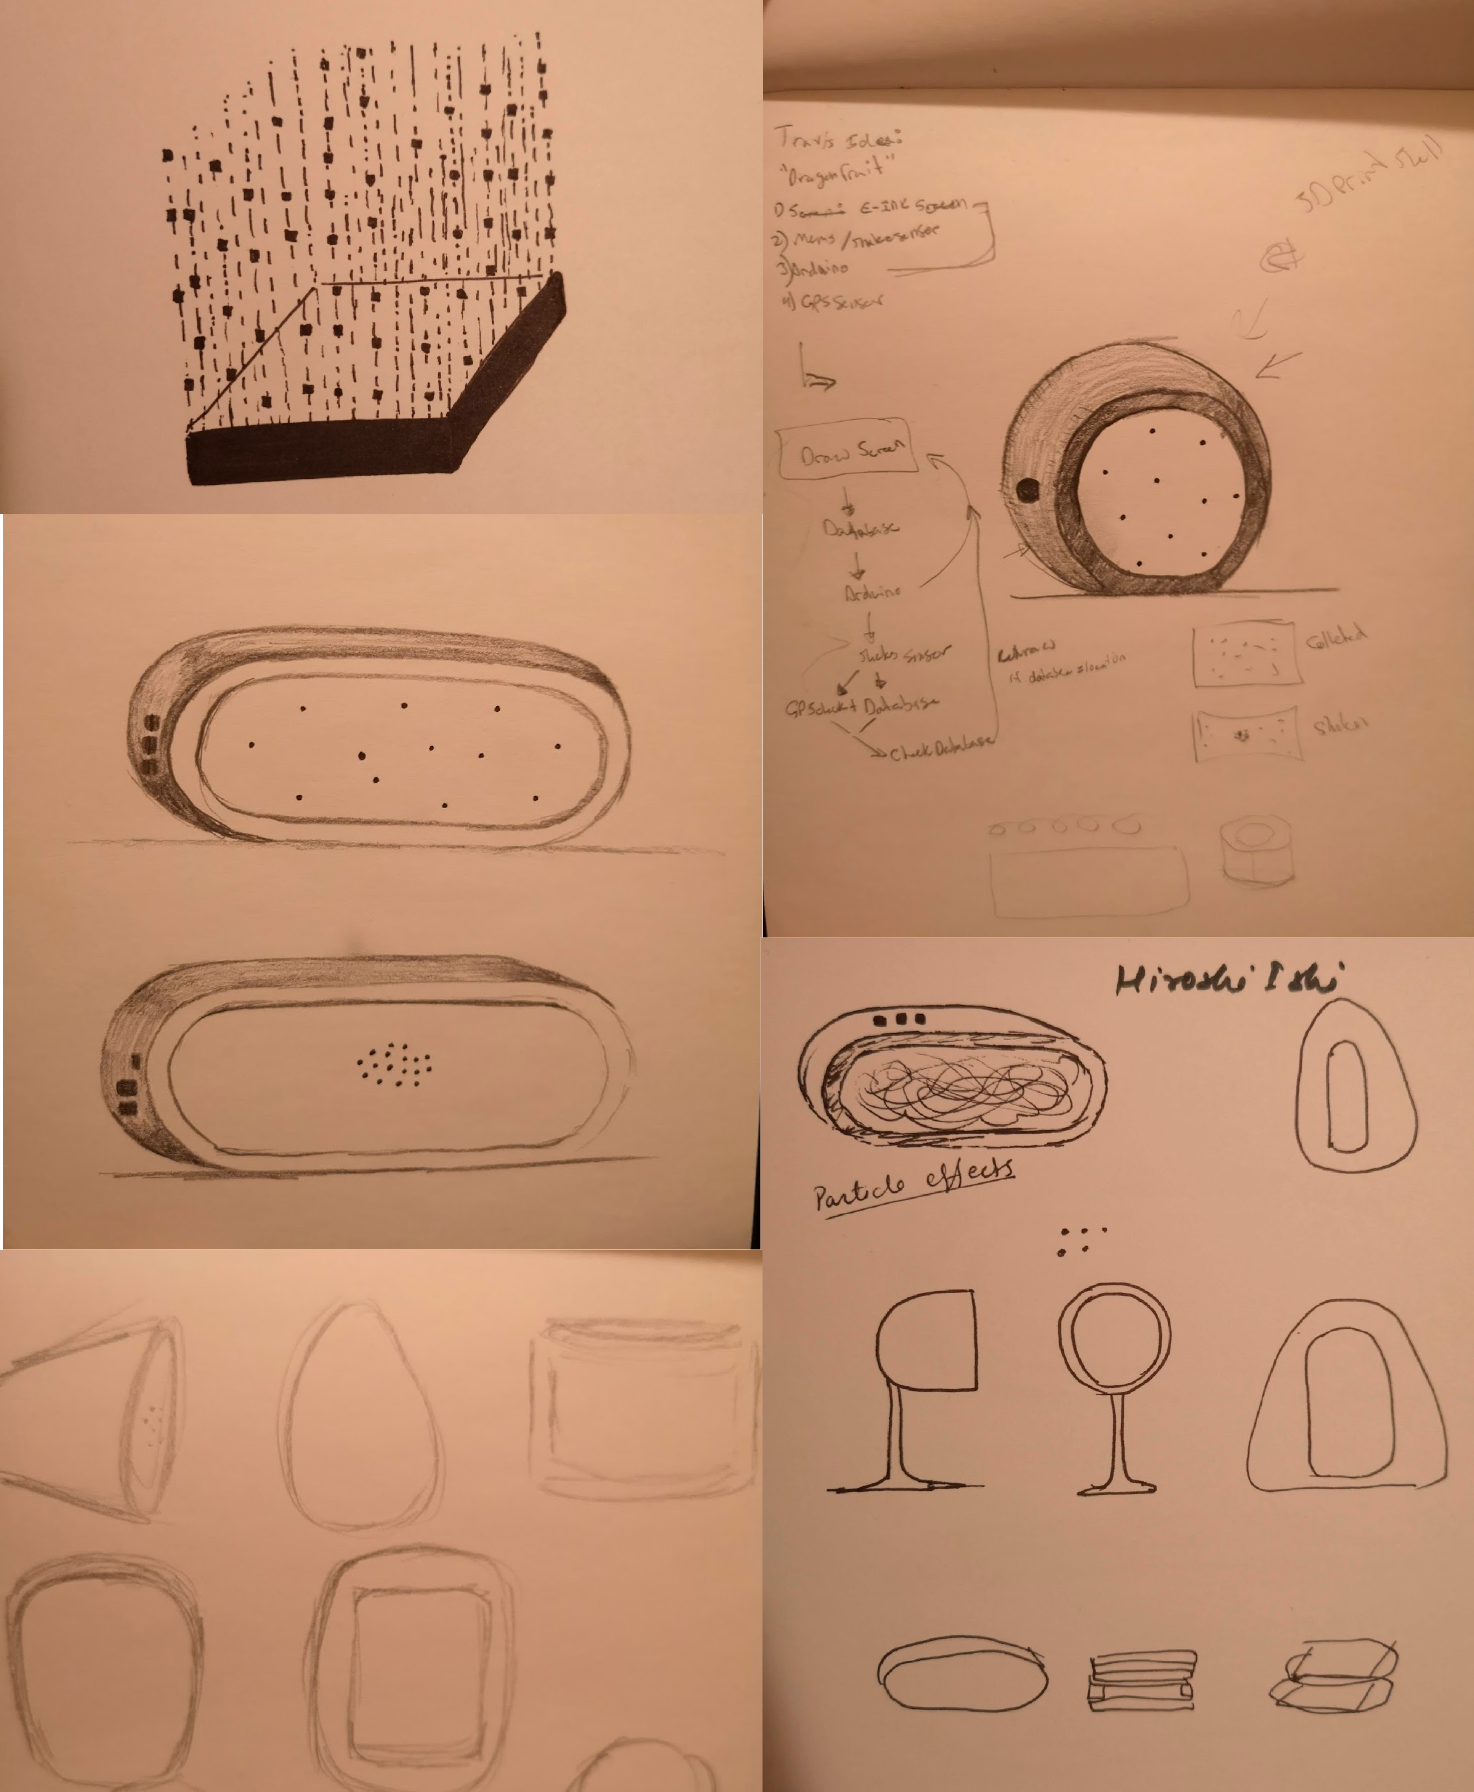 Travis Idea:
"Dragonfruit"
1) E-INK Screen
2) Mems / shake sensor
3) Arduino
4) GPS Sensor
3D Print Shell
Draw Screen
Database
Arduino
Shake Sensor
GPS Database
Check Database
Redraw
if database location
Collected
Shaken
Hiroshi Ishi
Particle effects